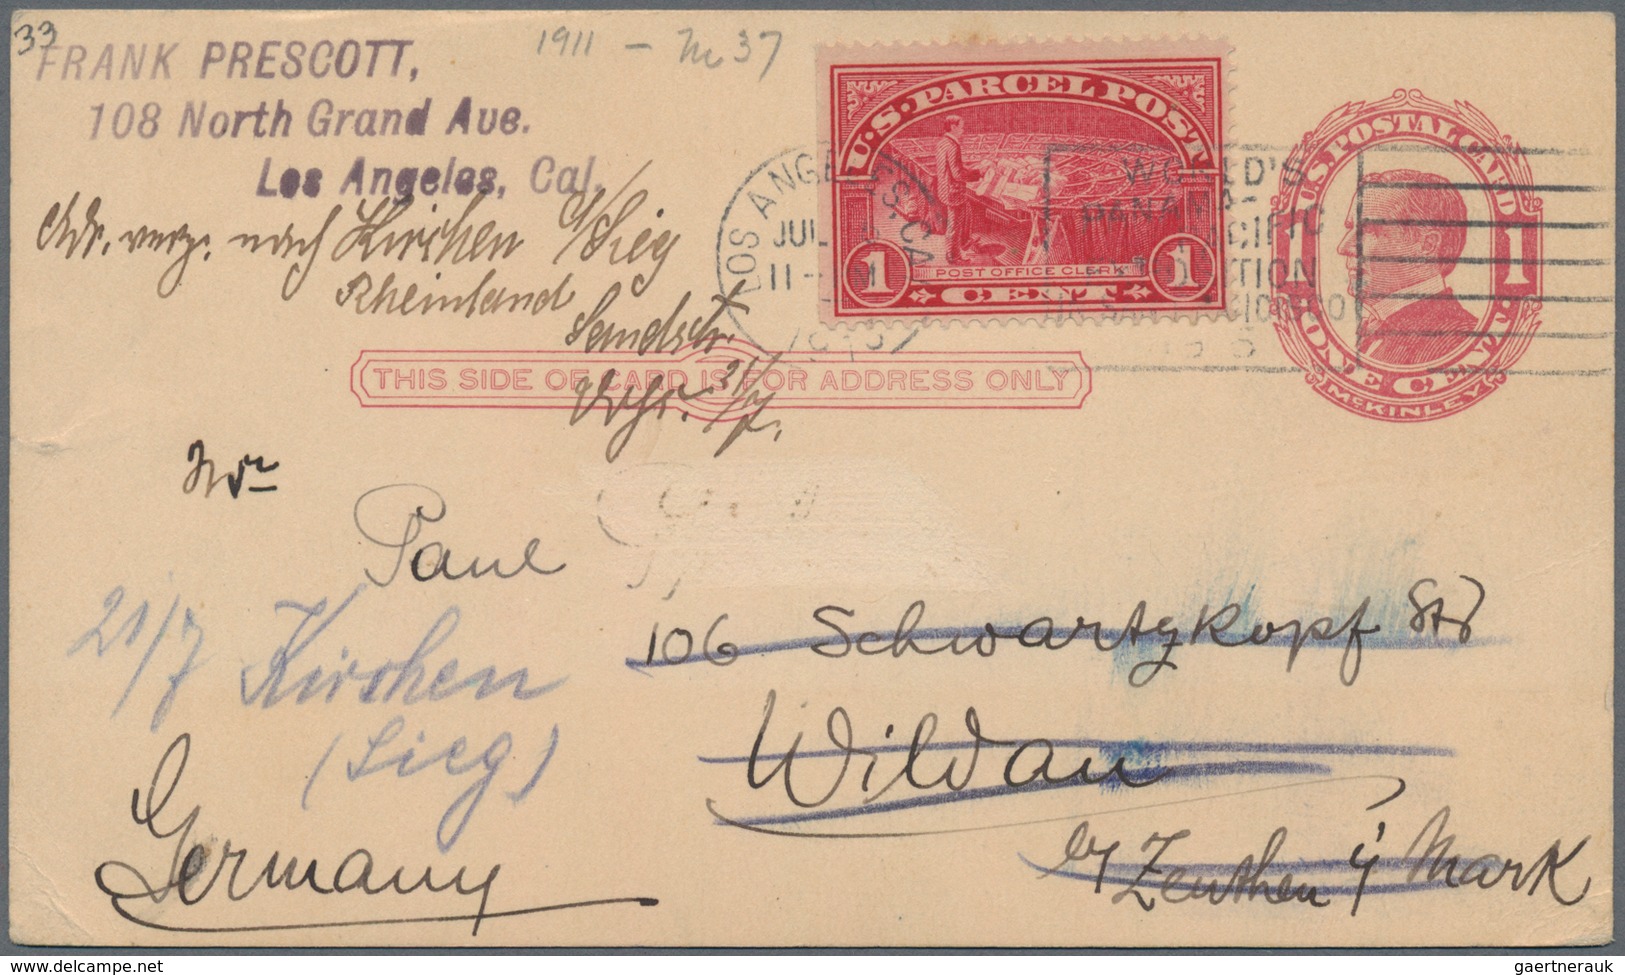 33
FRANK PRESCOTT,
108 North Grand Ave.
Los Angeles, Cal.
1911 – No 37
U.S. PARCEL POST
1 POST OFFICE CLERK 1
CENT
LOS ANGELES, CAL.
JUL
11
1913
WORLD'S
PANAMA-
PACIFIC
EXPOSITION
IN SAN FRANCISCO
1915
U.S. POSTAL CARD
1 1
ONE CENT
McKINLEY
Adr. verz. nach Kirchen a/Sieg
Rheinland
Sandstr.
21/7.
THIS SIDE OF CARD IS FOR ADDRESS ONLY
Paul
106 Schwartzkopf Str
21/7 Kirchen
(Sieg)
Wildau
by Zeuthen i Mark
Germany
delcampe.net
gaertnerauk